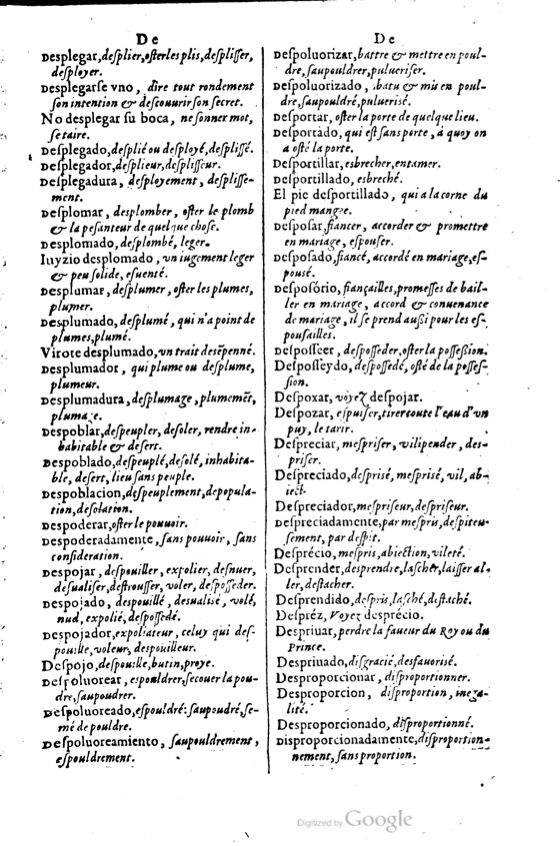 De
Desplegar, desplier, oster les plis, desplisser,
desployer.
Desplegarse vno, dire tout rondement
son intention & descouurir son secret.
No desplegar su boca, ne sonner mot,
se taire.
Desplegado, desplié ou desployé, desplissé.
Desplegador, desplieur, desplisseur.
Desplegadura, desployement, desplisse-
ment.
Desplomar, desplomber, oster le plomb
& la pesanteur de quelque chose.
Desplomado, desplombé, leger.
Iuyzio desplomado, vn iugement leger
& peu solide, esuenté.
Desplumar, desplumer, oster les plumes,
plumer.
Desplumado, desplumé, qui n'a point de
plumes, plumé.
Virote desplumado, vn trait desẽpenné.
Desplumador, qui plume ou desplume,
plumeur.
Desplumadura, desplumage, plumemẽt,
plumage.
Despoblar, despeupler, desoler, rendre in-
habitable & desert.
Despoblado, despeuplé, desolé, inhabita-
ble, desert, lieu sans peuple.
Despoblacion, despeuplement, depopula-
tion, desolation.
Despoderar, oster le pouuoir.
Despoderadamente, sans pouuoir, sans
consideration.
Despojar, despouiller, expolier, desnuer,
desualiser, destrousser, voler, desposseder.
Despojado, despouillé, desualisé, volé,
nud, expolié, despossedé.
Despojador, expoliateur, celuy qui des-
pouille, voleur, despouilleur.
Despojo, despouille, butin, proye.
Despoluorear, espouldrer, secouer la pou-
dre, saupoudrer.
Despoluoreado, espouldré: saupoudré, se-
mé de pouldre.
Despoluoreamiento, saupouldrement,
espouldrement.
De
Despoluorizar, battre & mettre en poul-
dre, saupouldrer, pulueriser.
Despoluorizado, batu & mis en poul-
dre, saupouldré, puluerisé.
Desportar, oster la porte de quelque lieu.
Desportado, qui est sans porte, à quoy on
a osté la porte.
Desportillar, esbrecher, entamer.
Desportillado, esbreché.
El pie desportillado, qui a la corne du
pied mangée.
Desposar, fiancer, accorder & promettre
en mariage, espouser.
Desposado, fiancé, accordé en mariage, es-
pousé.
Desposório, fiançailles, promesses de bail-
ler en mariage, accord & conuenance
de mariage, il se prend aussi pour les es-
pousailles.
Desposseer, desposseder, oster la possession.
Desposseydo, despossedé, osté de la posses-
sion.
Despoxar, voyez despojar.
Despozar, espuiser, tirer toute l'eau d'vn
puy, le tarir.
Despreciar, mespriser, vilipender, des-
priser.
Despreciado, desprisé, mesprisé, vil, ab-
iect.
Despreciador, mespriseur, despriseur.
Despreciadamente, par mespris, despiteu-
sement, par despit.
Desprécio, mespris, abiection, vileté.
Desprender, desprendre, lascher, laisser al-
ler, destacher.
Desprendido, despris, lasché, destaché.
Despréz, Voyez desprécio.
Despriuar, perdre la faueur du Roy ou du
Prince.
Despriuado, disgracié, desfauorisé.
Desproporcionar, disproportionner.
Desproporcion, disproportion, inega-
lité.
Desproporcionado, disproportionné.
Disproporcionadamente, disproportion-
nement, sans proportion.
Digitized by Google